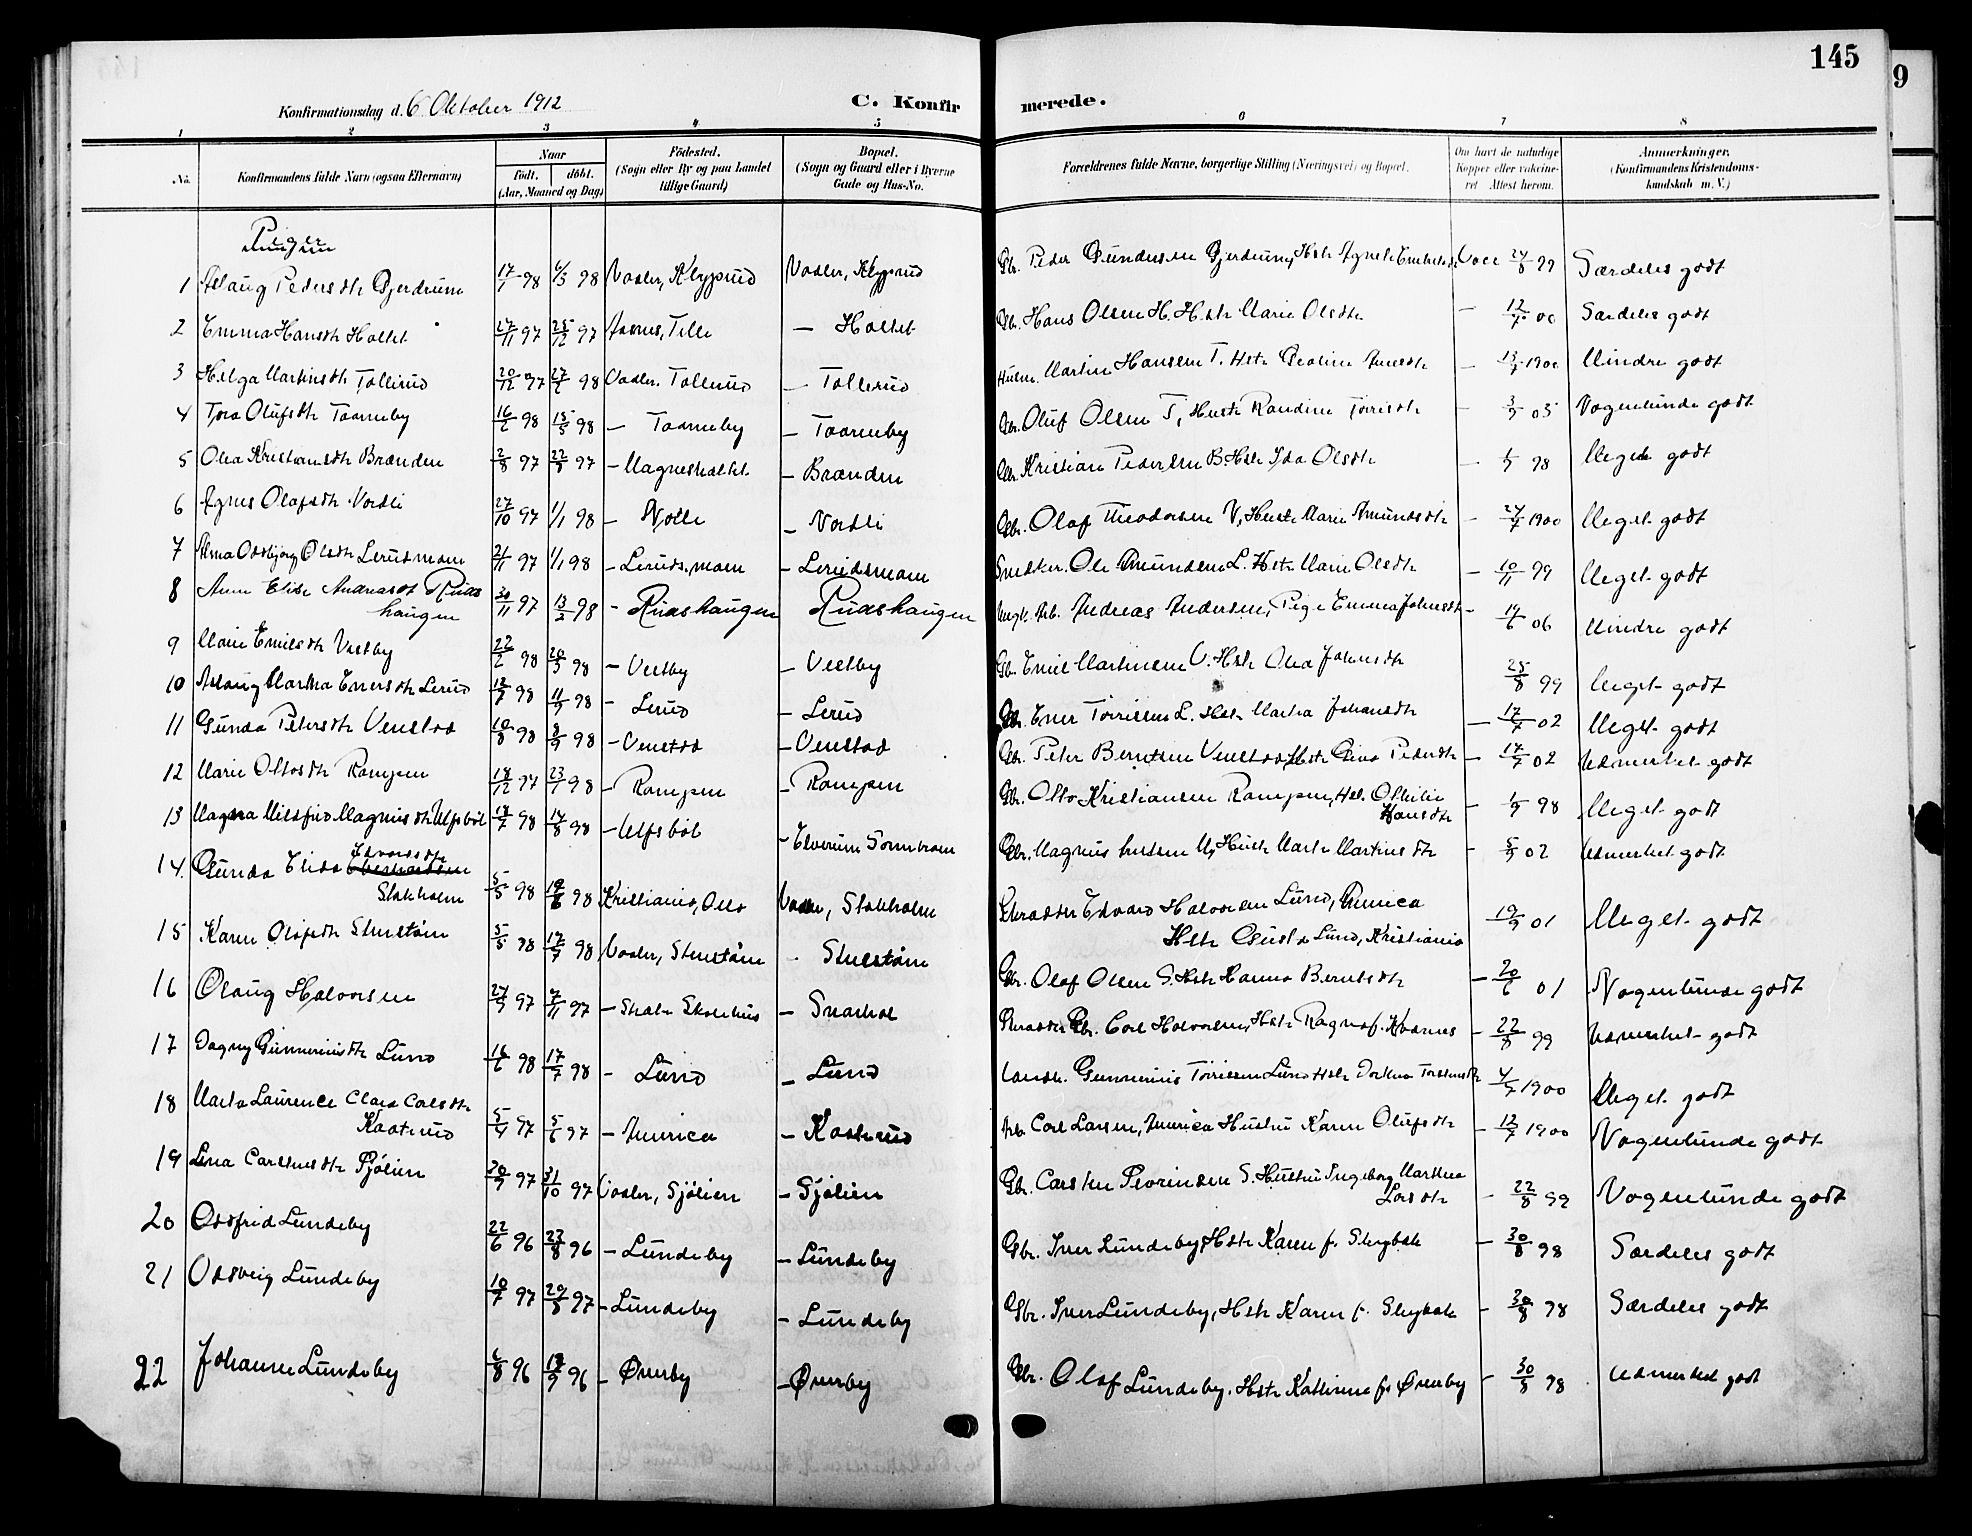 145
9
Konfirmationsdag d. 6 Oktober 1912
C. Konfirmerede.
1 2 3 4 5 6 7 8
No.
Konfirmandens fulde Navn (ogsaa Efternavn)
Naar
født. døbt.
(Aar, Maaned og Dag)
Födested.
(Sogn eller By og paa Landet
tillige Gaard)
Bopæl.
(Sogn og Gaard eller i Byerne
Gade og Hus-No.
Forældrenes fulde Navne, borgerlige Stilling (Næringsvei) og Bopæl.
Om havt de naturlige
Kopper eller vakcine-
ret Attest herom.
Anmerkninger.
(Konfirmandens Kristendoms-
kundskab m. V.)
Piger
1 Aslaug Pedersdtr Gjerdrum 17/1 98 6/3 98 Vaaler, Klyprud Vaaler, Klyprud Gbr. Peder Gundersen Gjerdrum, Hstr Agnete Vacc 24/8 99 Særdeles godt
2 Emma Hansdtr Holtet 27/11 97 25/12 97 Aasnes, Tille — Holtet Gbr. Hans Olsen H. Hstr Marie Olsdtr — 12/7 00 Særdeles godt
3 Helga Martinsdtr Tollerud 20/12 97 27/2 98 Vaaler, Tollerud — Tollerud Martin Hansen T. Hstr — 13/7 1900 Mindre godt
4 Tora Olufsdtr Taarneby 16/2 98 15/5 98 — Taarneby — Taarneby Gbr. Oluf Olsen T, Hustr Randine Torrisdtr — 3/7 05 Nogenlunde godt
5 Olea Kristiansdtr Brænden 2/8 97 22/8 97 — Magnesholtet — Brænden Gbr. Kristian Pedersen B. Hstr Ida Olsdtr — 98 Meget godt
6 Agnes Olafsdtr Nordli 27/10 97 1/1 98 — — Nordli Gbr. Olaf Theodorsen N, Hustr Marie Amundsdtr — 24/7 1900 Meget godt
7 Alma Oddbjørg Olsdtr Lerudsmoen 21/11 97 1/1 98 — Lerudsmoen — Lerudsmoen Snedker. Ole Amundsen L. Hstr Marie Olsdtr — 10/11 99 Meget godt
8 Anne Elise Andreasdt Ruds
haugen 30/11 97 13/2 98 — Rudshaugen Rudshaugen Ungk. Arb. Andreas Andersen, Pige Emma Johnsdtr — 14/6 06 Mindre godt
9 Marie Emilsdtr Vestby 22/2 98 20/3 98 — Vestby — Vestby Gbr. Emil Martinsen V. Hstr Olea Johnsdtr 25/8 99 Meget godt
10 Aslaug Martha Enersdtr Lerud 12/7 98 11/9 98 — Lerud — Lerud Gbr. Ener Torrissen L. Hstr Martea Johansdtr — 17/7 02 Meget godt
11 Gunda Petersdtr Venstad 10/8 98 8/9 98 — Venstad — Venstad Gbr. Peter Berntsen Venstad, Hstr Pedersdtr — 17/7 02 Udmerket godt
12 Marie Ottosdtr Rampen 18/12 97 23/1 98 — Rampen — Rampen Gbr. Otto Kristiansen Rampen, Hst. Othilie
Hansdtr — 98 Meget godt
13 Magna Milfrid Magnusdtr Ulfsbøl 13/7 98 14/8 98 — Ulfsbøl — Elverum Gbr. Magnus U, Hustr Marte Martinsdtr — 5/9 02 Udmerket godt
14. Gunda Elida Edvardsdtr
Stokholm 5/5 98 19/6 98 Kristiania, Oslo Vaaler, Stokholm Skrædder Edvard Halvorsen Lund, Amerika
Hstr Gusta Lund, Kristiania 19/9 01 Meget godt
15 Karen Olafsdtr Stustøm 5/5 98 17/7 98 Vaaler, Stustøm — Stustøm Gbr. Olaf Olsen S. Hstr Hanna Berntsdtr — 20/6 01 Nogenlunde godt
16 Olaug Halvorsen 24/9 97 7/11 97 — — Snarhol Skrædder Gbr. Carl Halvorsen, Hstr Ragna f. — 22/8 99 Udmerket godt
17 Dagny Gunneriusdtr Lund 16/6 98 17/7 98 — Lund — Lund Landh. Gunnerius Torrissen Lund Hstr Dorthea — 4/7 1900 Meget godt
18 Marta Laurence Clara Carlsdtr
Kaaterud 5/4 97 5/6 97 — Amerika — Kaaterud Arb. Carl Larsen, Amerika Hustru Karen Olufsdtr — 12/7 1900 Nogenlunde godt
19 Lena Carstensdtr Sjølien 20/9 97 31/10 97 Vaaler, Sjølien — Sjølien Gbr. Carsten S. Hustru Ingeborg Marthea
Larsdtr — 22/8 99 Nogenlunde godt
20 Oddfrid Lundeby 22/6 96 23/8 96 — Lundeby — Lundeby Gbr. Iver Lundeby, Hstr Karen f. — 30/8 98 Særdeles godt
21 Oddveig Lundeby 10/7 97 29/8 97 — Lundeby — Lundeby Gbr. Iver Lundeby, Hstr Karen f. — 30/8 98 Særdeles godt
22 Johanne Lundeby 6/8 96 13/9 96 — Øverby — Øverby Gbr. Olaf Lundeby. Hstr Kathrine f. Øverby — 30/8 98 Udmerket godt